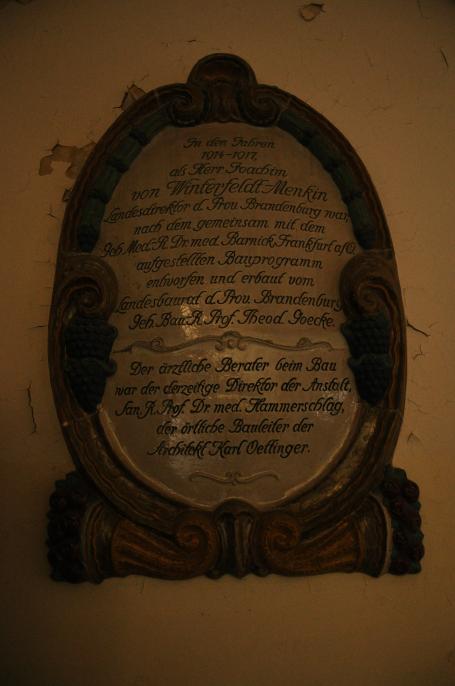 In den Jahren
1914-1917,
als Herr Joachim
von Winterfeldt-Menkin
Landesdirektor d. Prov. Brandenburg war,
nach dem gemeinsam mit dem
Geh. Med. R. Dr. med. Barnick, Frankfurt a/O.
aufgestellten Bauprogramm
entworfen und erbaut vom
Landesbaurat d. Prov. Brandenburg
Geh. Bau. R. Prof. Theod. Goecke.
Der ärztliche Berater beim Bau
war der derzeitige Direktor der Anstalt,
San. R. Prof. Dr. med. Hammerschlag,
der örtliche Bauleiter der
Architekt Karl Oettinger.